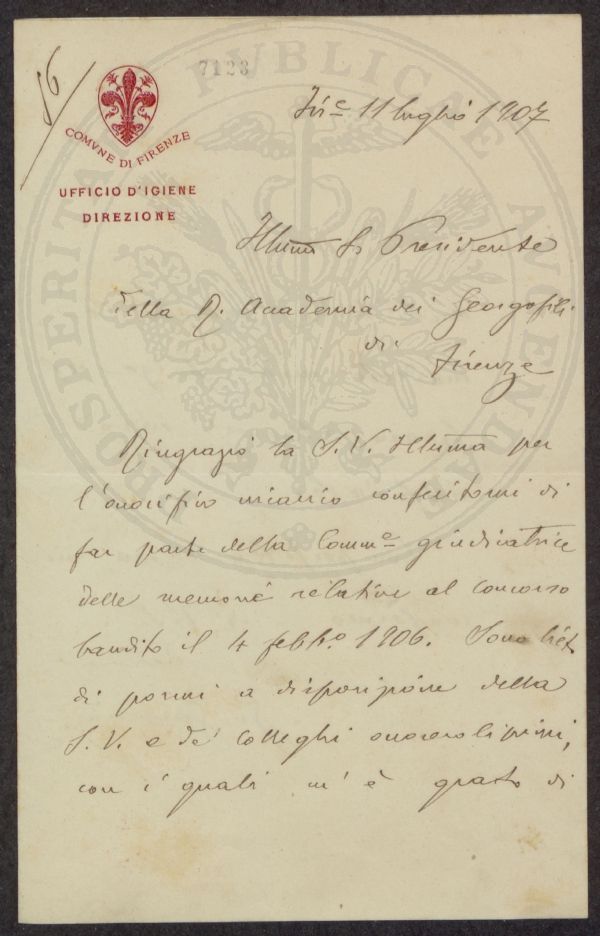 56
7123
COMVNE DI FIRENZE
UFFICIO D'IGIENE
DIREZIONE
Fire 11 luglio 1907
Illumo Sr Presidente
della R. Accademia dei Georgofili
di
Firenze
Ringrazio la S. V. Illuma per
l'onorifico incarico conferitomi di
far parte della Comme giudicatrice
delle memorie relative al concorso
bandito il 4 febbo. 1906. Sono lieto
di pormi a disposizione della
S. V. e de' Colleghi onorevolissimi,
con i quali m' è grato di